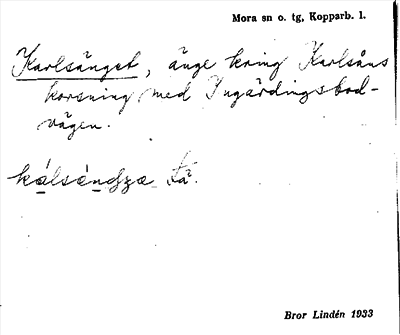 Mora sn o. tg, Kopparb. l.
Karlsänget, änge kring Karlsåns
korsning med Ingärdingsbod-
vägen.
Bror Lindén 1933